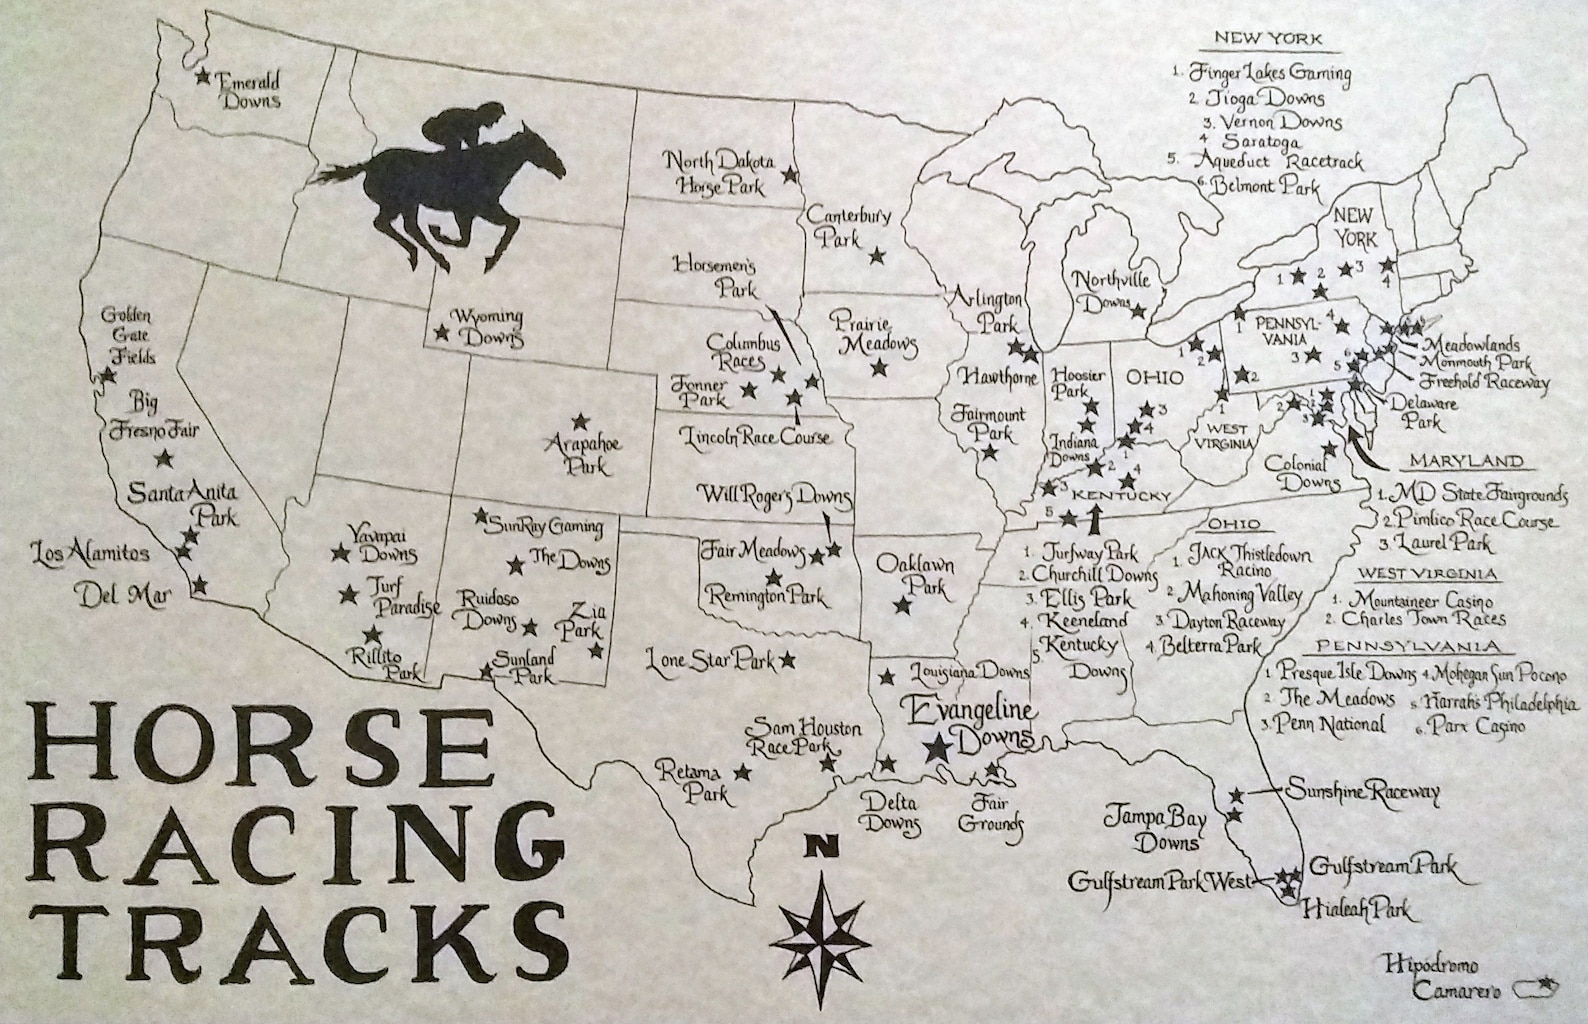 NEW YORK
1. Finger Lakes Gaming
2 Tioga Downs
3. Vernon Downs
4 Saratoga
5. Aqueduct Racetrack
6. Belmont Park
Emerald
Downs
North Dakota
Horse Park
Canterbury
Park
NEW
YORK
1 2 3 4
Horsemen's
Park
Northville
Downs
Arlington
Park
Golden
Gate
Fields
Wyoming
Downs
Columbus
Races
Prairie
Meadows
Hawthorne
Hoosier
Park
OHIO
1 2
3
4
PENNSYL-
VANIA
1
2
3
4
5
6
Meadowlands
Monmouth Park
Freehold Raceway
Delaware
Park
Fonner
Park
Lincoln Race Course
Big
Fresno Fair
Arapahoe
Park
Fairmount
Park
Indiana
Downs
WEST
VIRGINIA
1
2
1
2
3
Colonial
Downs
MARYLAND
1. MD State Fairgrounds
2. Pimlico Race Course
3. Laurel Park
Santa Anita
Park
Los Alamitos
Del Mar
Will Rogers Downs
KENTUCKY
1
2
3
4
5
Yavapai
Downs
Turf
Paradise
Rillito
Park
SunRay Gaming
The Downs
Ruidoso
Downs
Zia
Park
Sunland
Park
Fair Meadows
Remington Park
Oaklawn
Park
1. Turfway Park
2. Churchill Downs
3. Ellis Park
4. Keeneland
5. Kentucky
Downs
OHIO
1. JACK Thistledown
Racino
2. Mahoning Valley
3 Dayton Raceway
4. Belterra Park
WEST VIRGINIA
1. Mountaineer Casino
2. Charles Town Races
PENNSYLVANIA
1 Presque Isle Downs
2 The Meadows
3. Penn National
4. Mohegan Sun Pocono
5 Harrah's Philadelphia
6. Parx Casino
Lone Star Park
Louisiana Downs
Evangeline
Downs
Sam Houston
Race Park
Retama
Park
Delta
Downs
Fair
Grounds
Sunshine Raceway
Tampa Bay
Downs
Gulfstream Park West
Gulfstream Park
Hialeah Park
Hipódromo
Camarero
HORSE
RACING
TRACKS
N